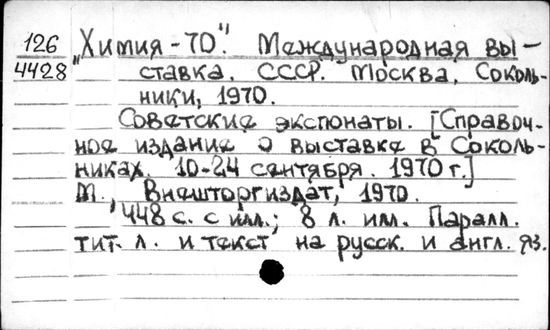 126 „Химия-70". Международная вы-
4428 ставка. СССР. Москва, Соколь-
ники, 1970.
Советские экспонаты. [Справоч-
ное издание о выставке в Соколь-
никах. 10-24 сентября. 1970 г.]
М., Внешторгиздат, 1970.
448 с. с илл.; 8 л. илл. Паралл.
тит. л. и текст на русск. и англ. яз.